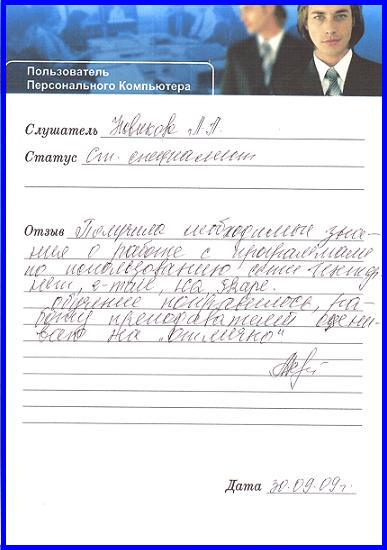 Пользователь
Персонального Компьютера
Слушатель Новикова Л.А.
Статус Ст. специалист
Отзыв Получила необходимые зна-
ния о работе с программами
по использованию сети Интер
нет, e-mail, на яраре.
обучение понравилось, ра-
боту преподавателей оцени-
ваю на „отлично"
Дата 30.09.09г.